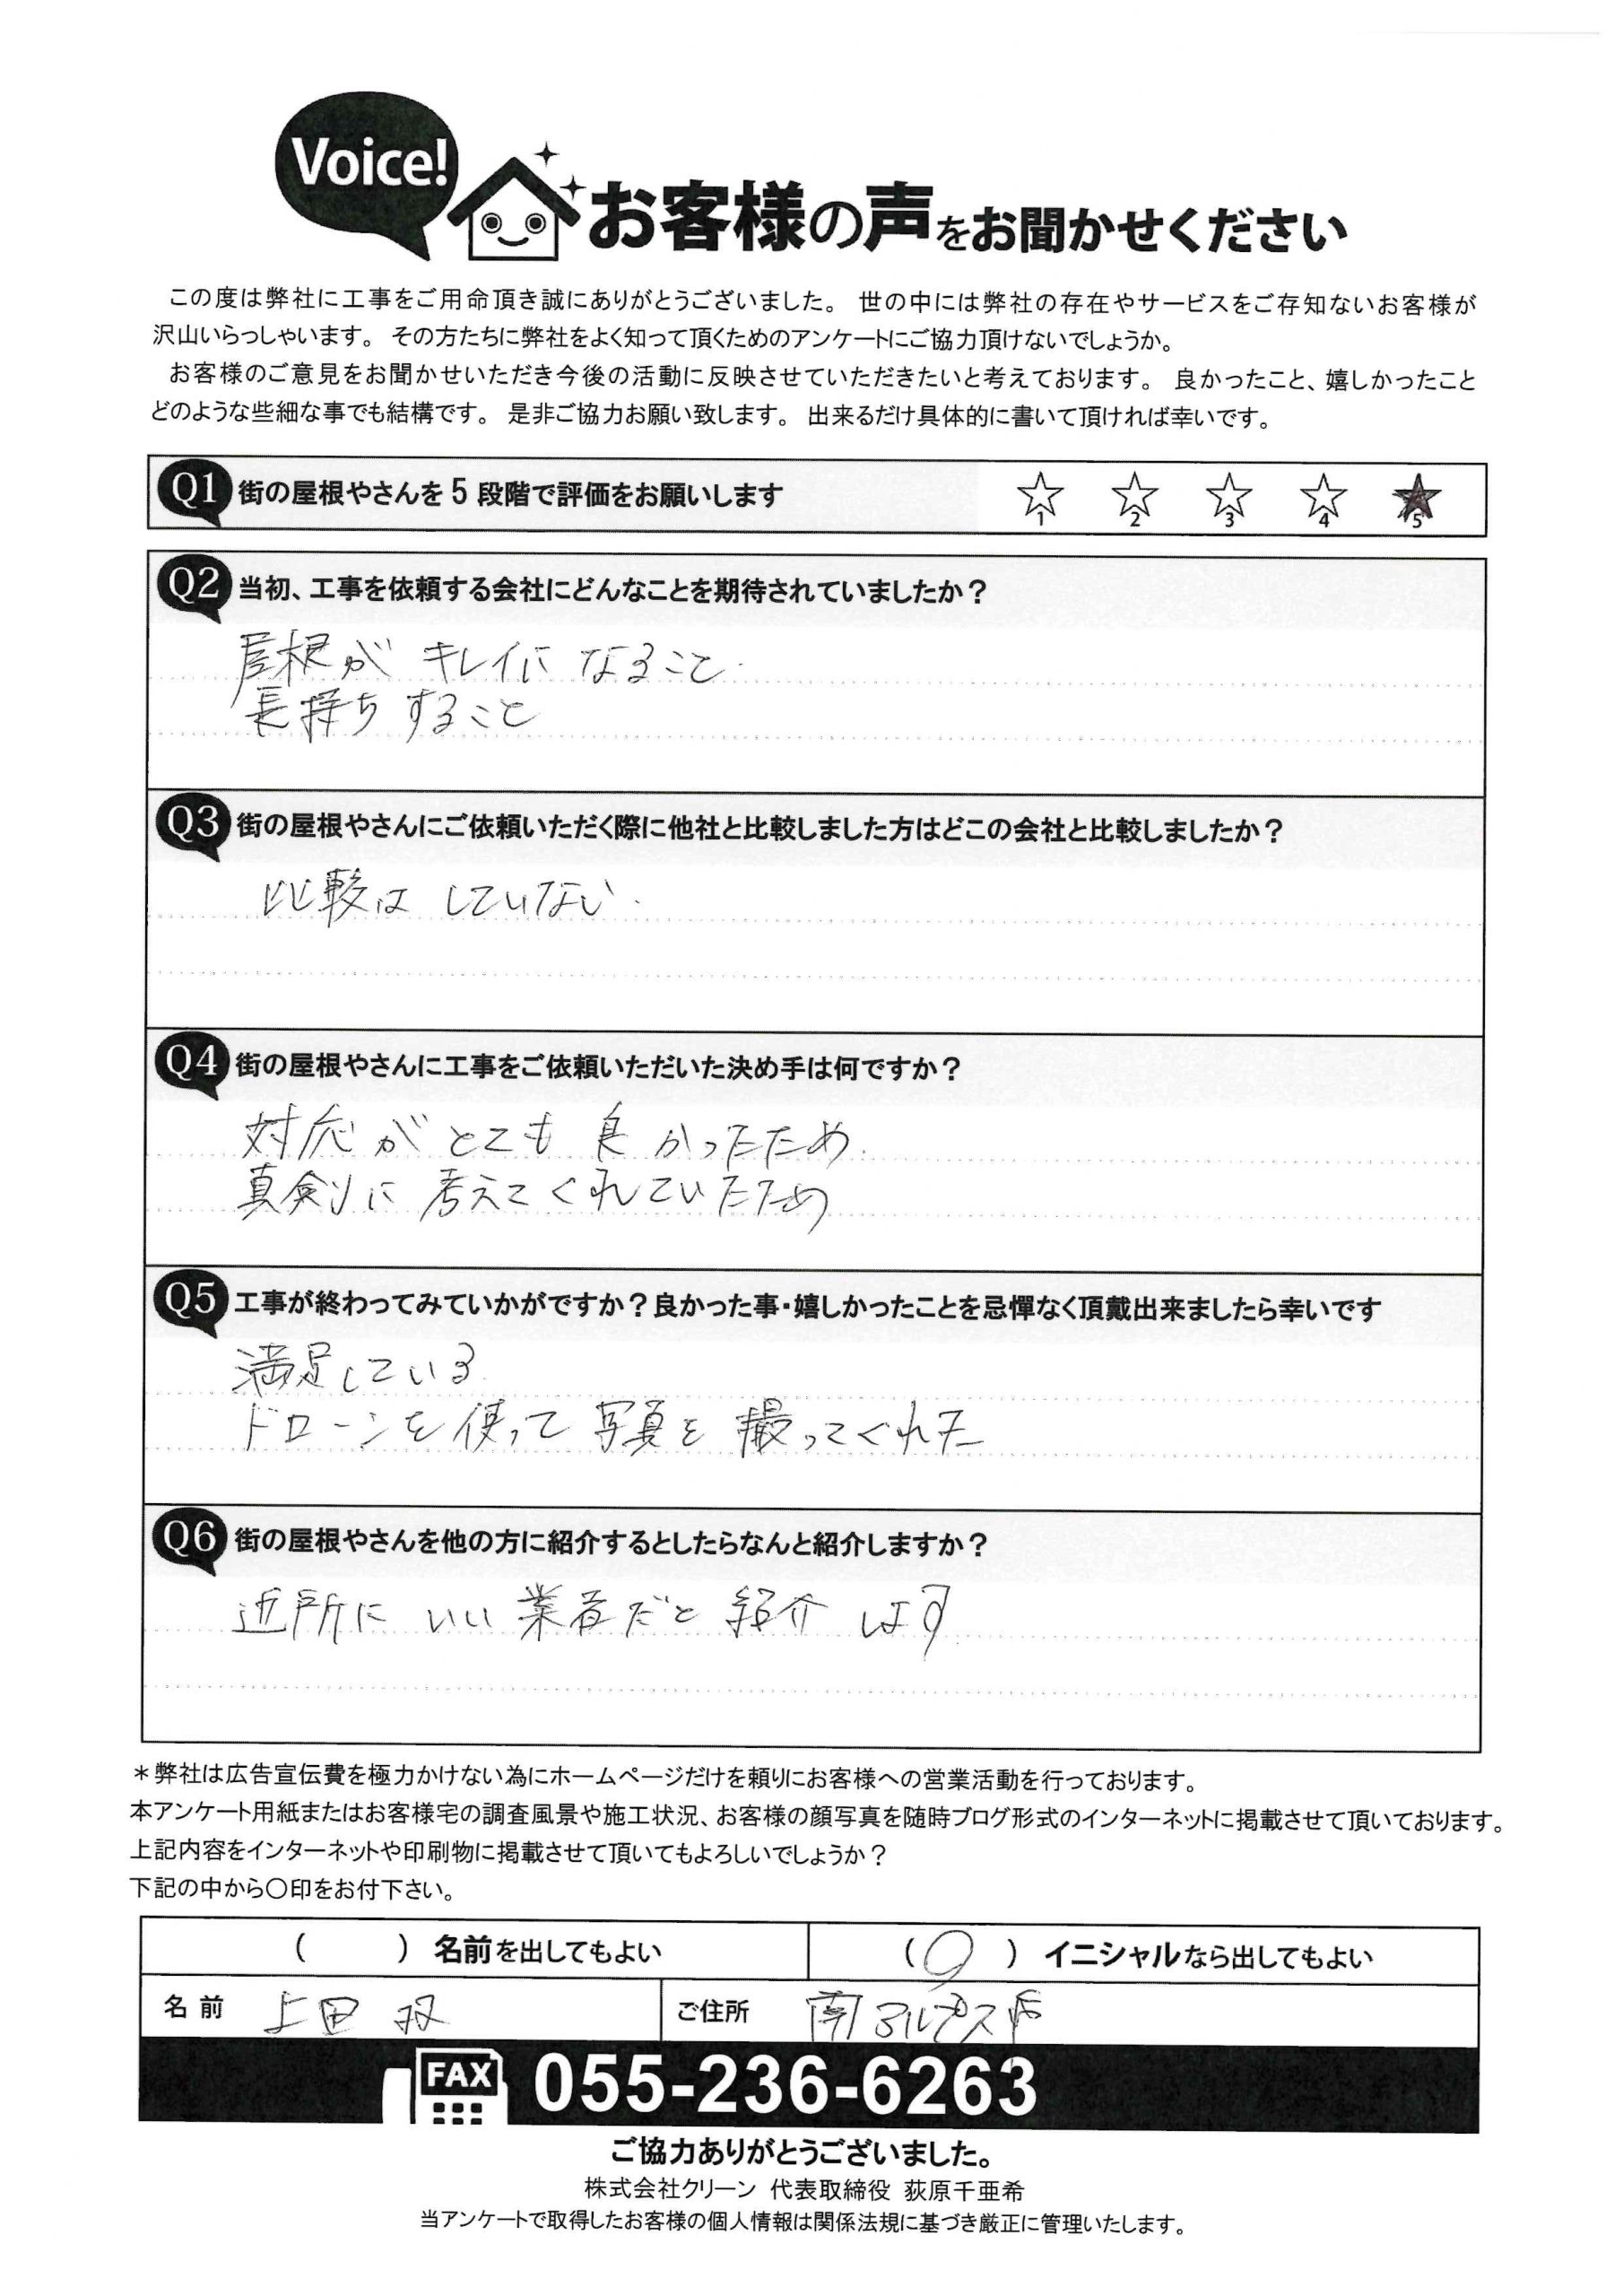 Voice!
お客様の声をお聞かせください
この度は弊社に工事をご用命頂き誠にありがとうございました。 世の中には弊社の存在やサービスをご存知ないお客様が
沢山いらっしゃいます。 その方たちに弊社をよく知って頂くためのアンケートにご協力頂けないでしょうか。
お客様のご意見をお聞かせいただき今後の活動に反映させていただきたいと考えております。 良かったこと、嬉しかったこと
どのような些細な事でも結構です。 是非ご協力お願い致します。 出来るだけ具体的に書いて頂ければ幸いです。
Q1 街の屋根やさんを5段階で評価をお願いします ☆1 ☆2 ☆3 ☆4 ★5
Q2 当初、工事を依頼する会社にどんなことを期待されていましたか?
屋根が キレイに なること
長持ち すること
Q3 街の屋根やさんにご依頼いただく際に他社と比較しました方はどこの会社と比較しましたか?
比較は していない
Q4 街の屋根やさんに工事をご依頼いただいた決め手は何ですか?
対応がとても良かったため
真剣に考えてくれていたため
Q5 工事が終わってみていかがですか?良かった事・嬉しかったことを忌憚なく頂戴出来ましたら幸いです
満足している
ドローンを使って写真を撮ってくれた
Q6 街の屋根やさんを他の方に紹介するとしたらなんと紹介しますか?
近所に いい業者だと 紹介 します
＊弊社は広告宣伝費を極力かけない為にホームページだけを頼りにお客様への営業活動を行っております。
本アンケート用紙またはお客様宅の調査風景や施工状況、お客様の顔写真を随時ブログ形式のインターネットに掲載させて頂いております。
上記内容をインターネットや印刷物に掲載させて頂いてもよろしいでしょうか?
下記の中から〇印をお付下さい。
(　　) 名前を出してもよい (〇) イニシャルなら出してもよい
名前 上田 ご住所 南アルプス市
FAX 055-236-6263
ご協力ありがとうございました。
株式会社クリーン 代表取締役 荻原千亜希
当アンケートで取得したお客様の個人情報は関係法規に基づき厳正に管理いたします。